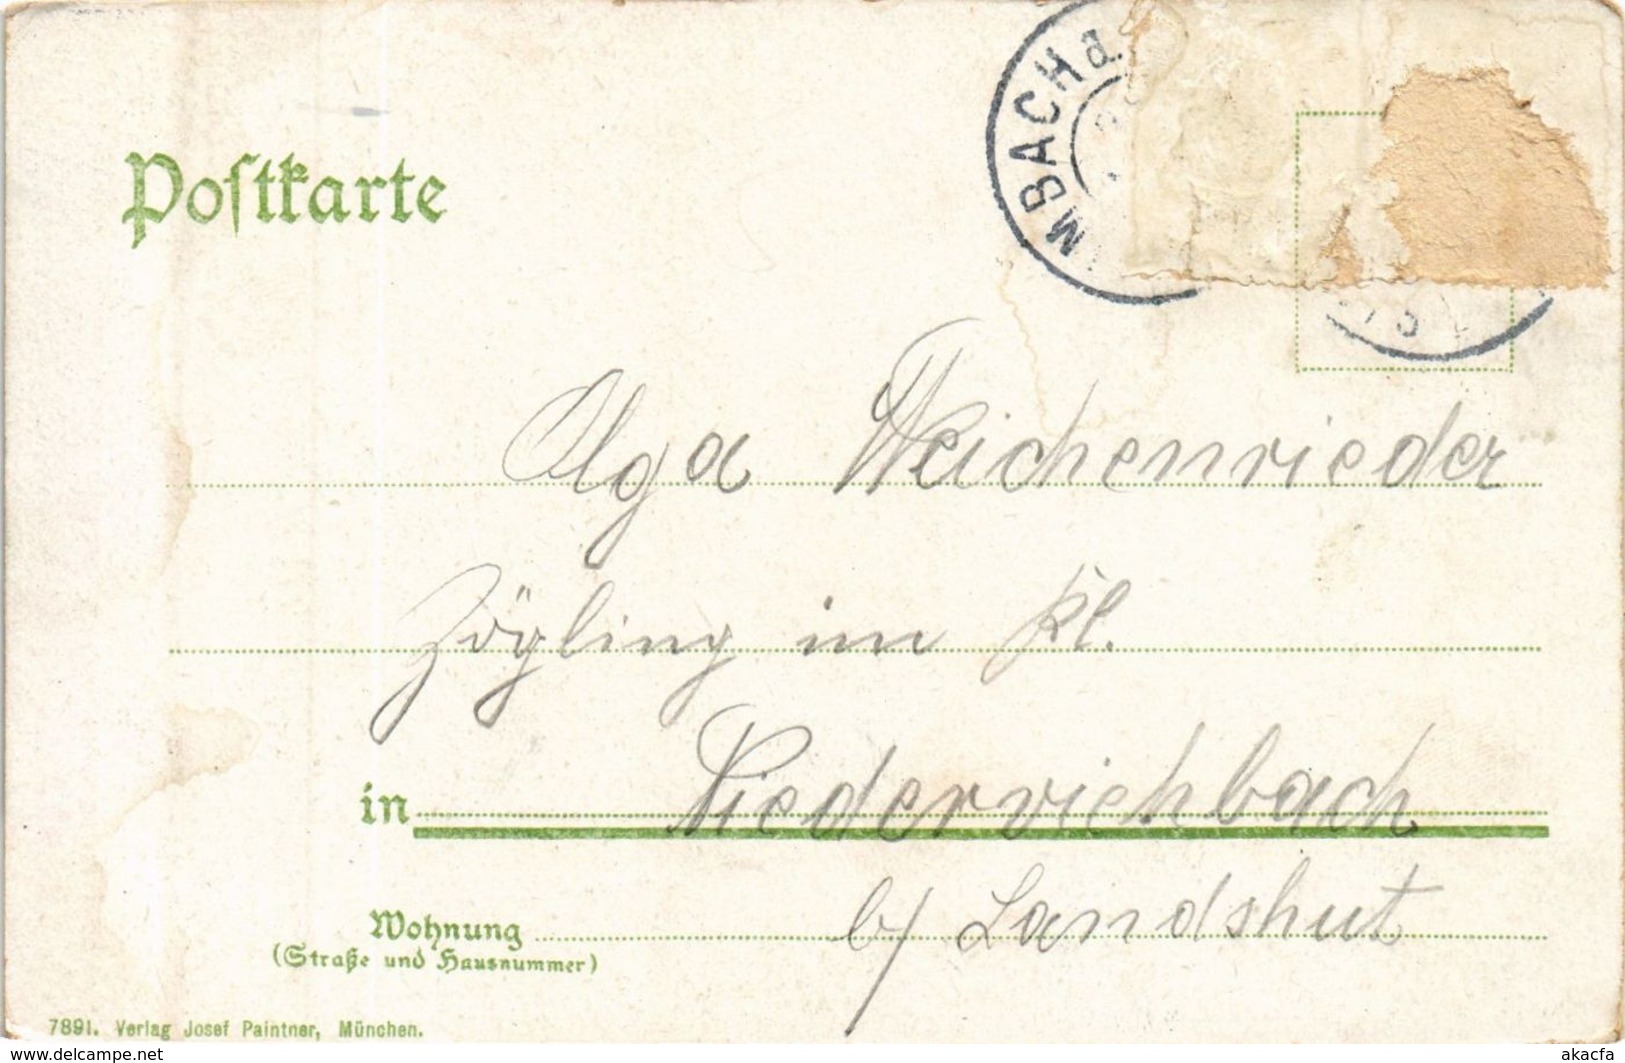 MBACH a.
Postkarte
Olga Weichenrieder
Zögling im Kl.
in Niederviehbach
Wohnung b/ Landshut
(Straße und Hausnummer)
7891. Verlag Josef Paintner, München.
www.delcampe.net
akacfa